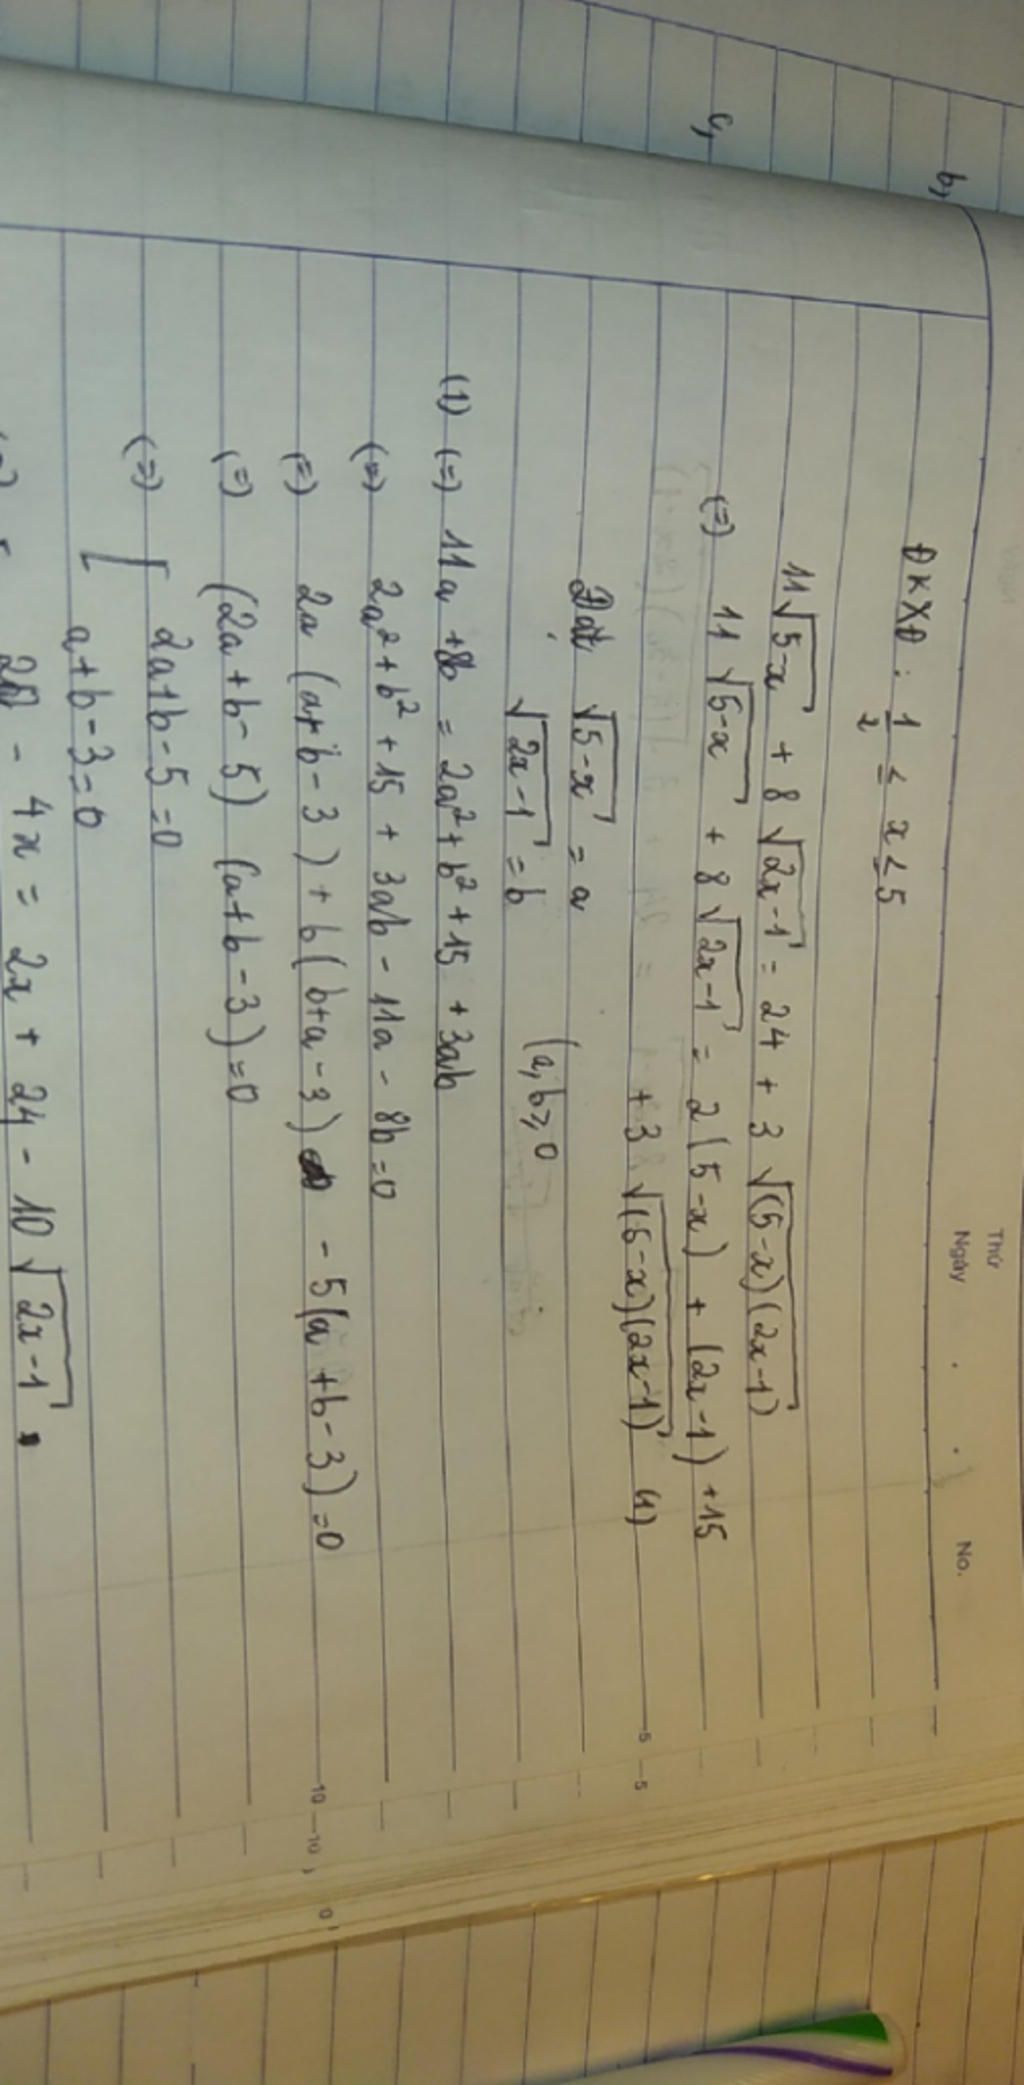 Thứ
Ngày . . No.
b,
c,
ĐKXĐ : 1/2 ≤ x ≤ 5
11√(5-x) + 8√(2x-1) = 24 + 3√((5-x)(2x-1))
(=) 11√(5-x) + 8√(2x-1) = 2(5-x) + (2x-1) +15
+ 3√((5-x)(2x-1)) (1)
Đặt √(5-x) = a
√(2x-1) = b (a, b ≥ 0
(1) (=) 11a + 8b = 2a² + b² + 15 + 3ab
(=) 2a² + b² + 15 + 3ab - 11a - 8b = 0
(=) 2a (a+b-3) + b(b+a-3) - 5(a+b-3) = 0
(=) (2a+b-5) (a+b-3) = 0
(=) [ 2a+b-5 = 0
a+b-3 = 0
- 4x = 2x + 24 - 10√(2x-1) .
5 5
10 10